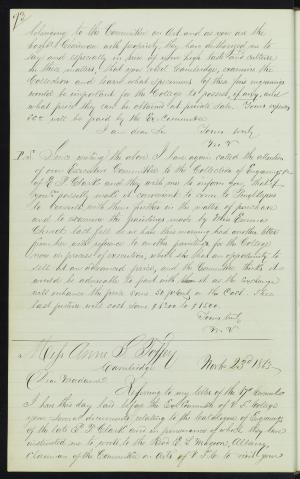 92
belonging to the Committee on Art and as you are the
Chairman with propriety they have authorized me to
say and especially in view of your high taste and culture
in these matters, that you visit Cambridge, examine the
Collection and learn what specimens of these fine engravings
would be important for the College to possess, if any, and
what price they can be obtained at private sale. Yours expenses
&c will be paid by the Ex Committee
I am dear Sir Yours truly
P.S. Since writing the above I have again called the attention
of our Executive Committee to the Collection of Engravings
of Clark and they wish me to inform you that if
you possibly make it convenient to come to Po'keepsie
to consult with them further in the matter of purchase
and to examine the paintings made by Miss Emma
Church last fall as we have this morning had another letter
from her with reference to another painting for the College
now in process of execution, which she has an opportunity to
sell at an advanced price, and the Committee thinks it
would be advisable to part with as the Exchange
will enhance the price some 50 pr cent on the Cost. The
last picture will cost some $1200 to $1500.
Yours truly
Miss Anne
Cambridge Nov 23d 186
Dear Madam
Referring to my letter of the 17 I
I have this day laid before the Ex Committee of V. F. College
your several documents relating to the Catalogue of Engravings
of the late Clark and in pursuance of which they have
instructed me to write to the Revd E L Magoon, Albany,
Chairman of the Committee on Arts of V F C to visit your